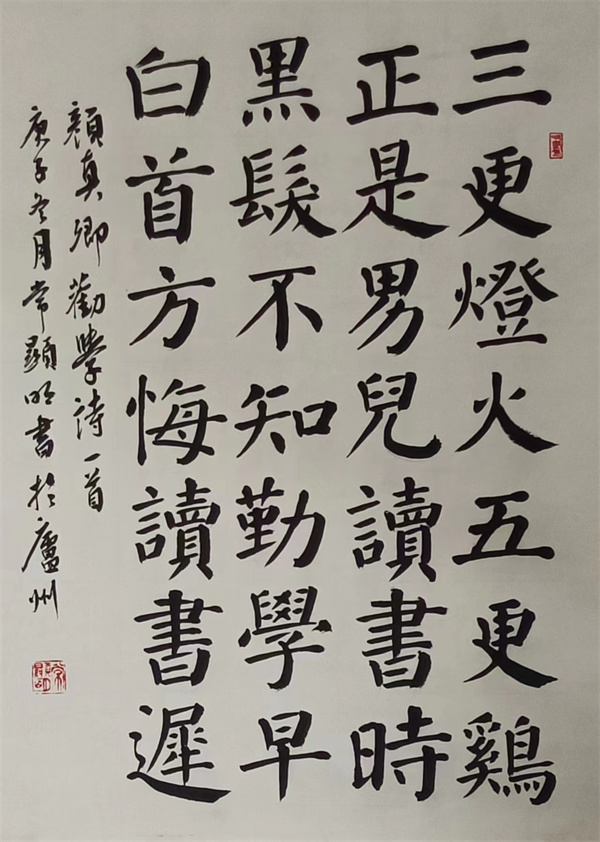 三更燈火五更鷄
正是男兒讀書時
黑髮不知勤學早
白首方悔讀書遲
顏真卿勸學詩一首
庚子冬月常顯明書於廬州